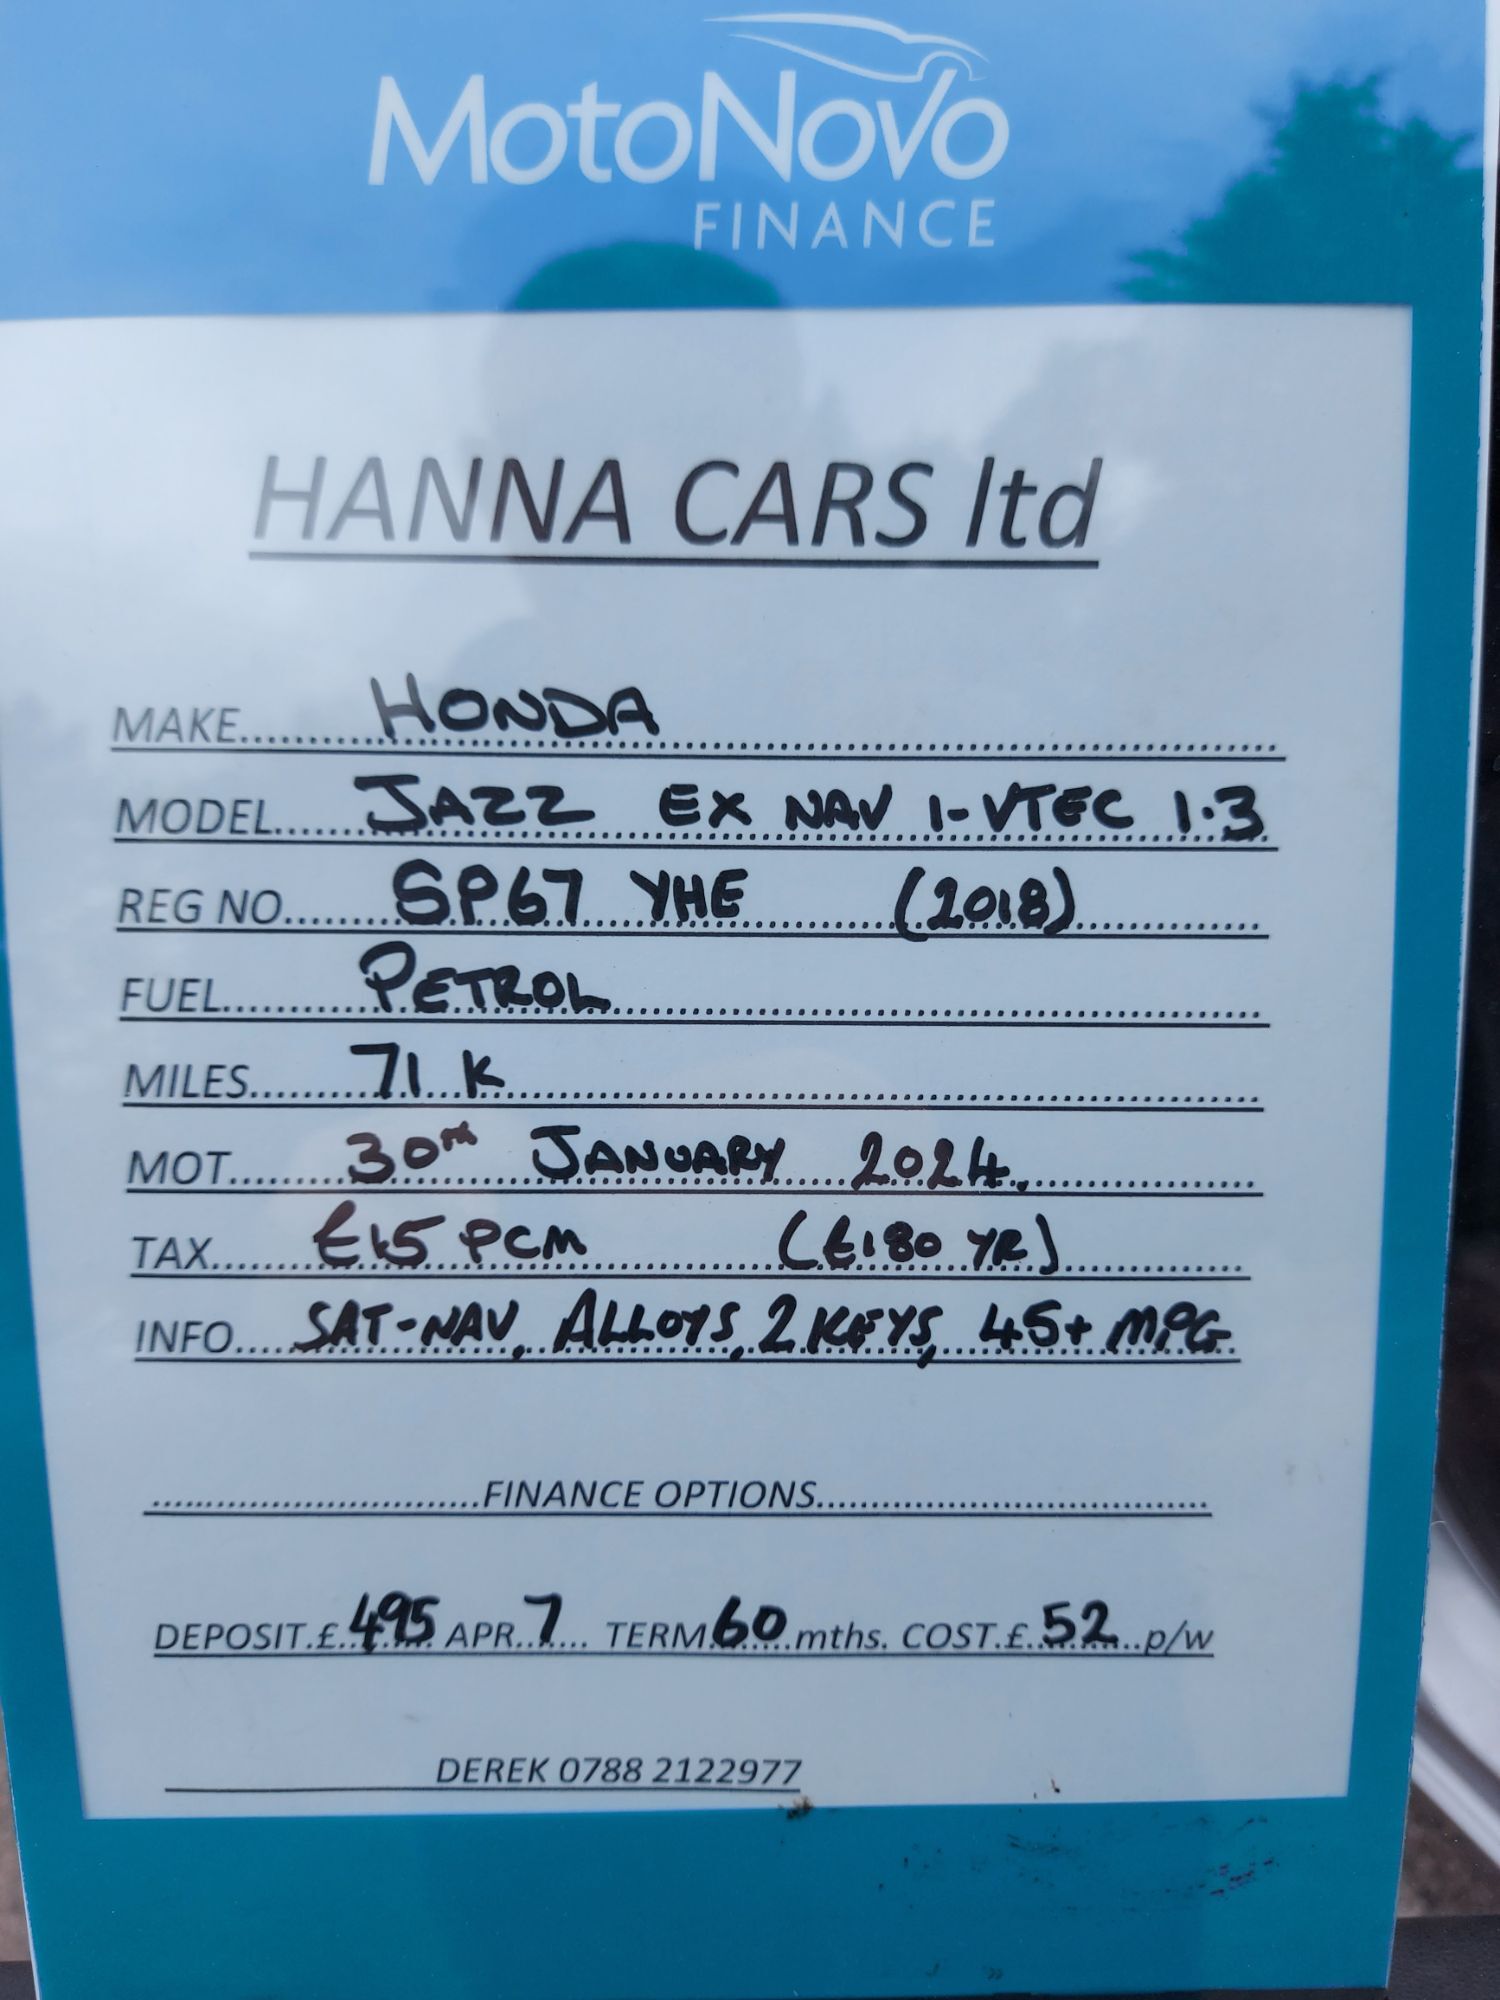 MotoNovo
FINANCE
HANNA CARS ltd
MAKE.....HONDA.....
MODEL.....JAZZ EX NAV I-VTEC 1.3
REG NO.....SP67 YHE (2018).....
FUEL.....PETROL.....
MILES.....71 K.....
MOT.....30TH JANUARY 2024......
TAX.....£15 PCM (£180 YR).....
INFO.....SAT-NAV, ALLOYS, 2 KEYS, 45+ MPG
.....FINANCE OPTIONS.....
DEPOSIT.£.495 APR..7.... TERM.60...mths. COST.£.52...p/w
DEREK 0788 2122977